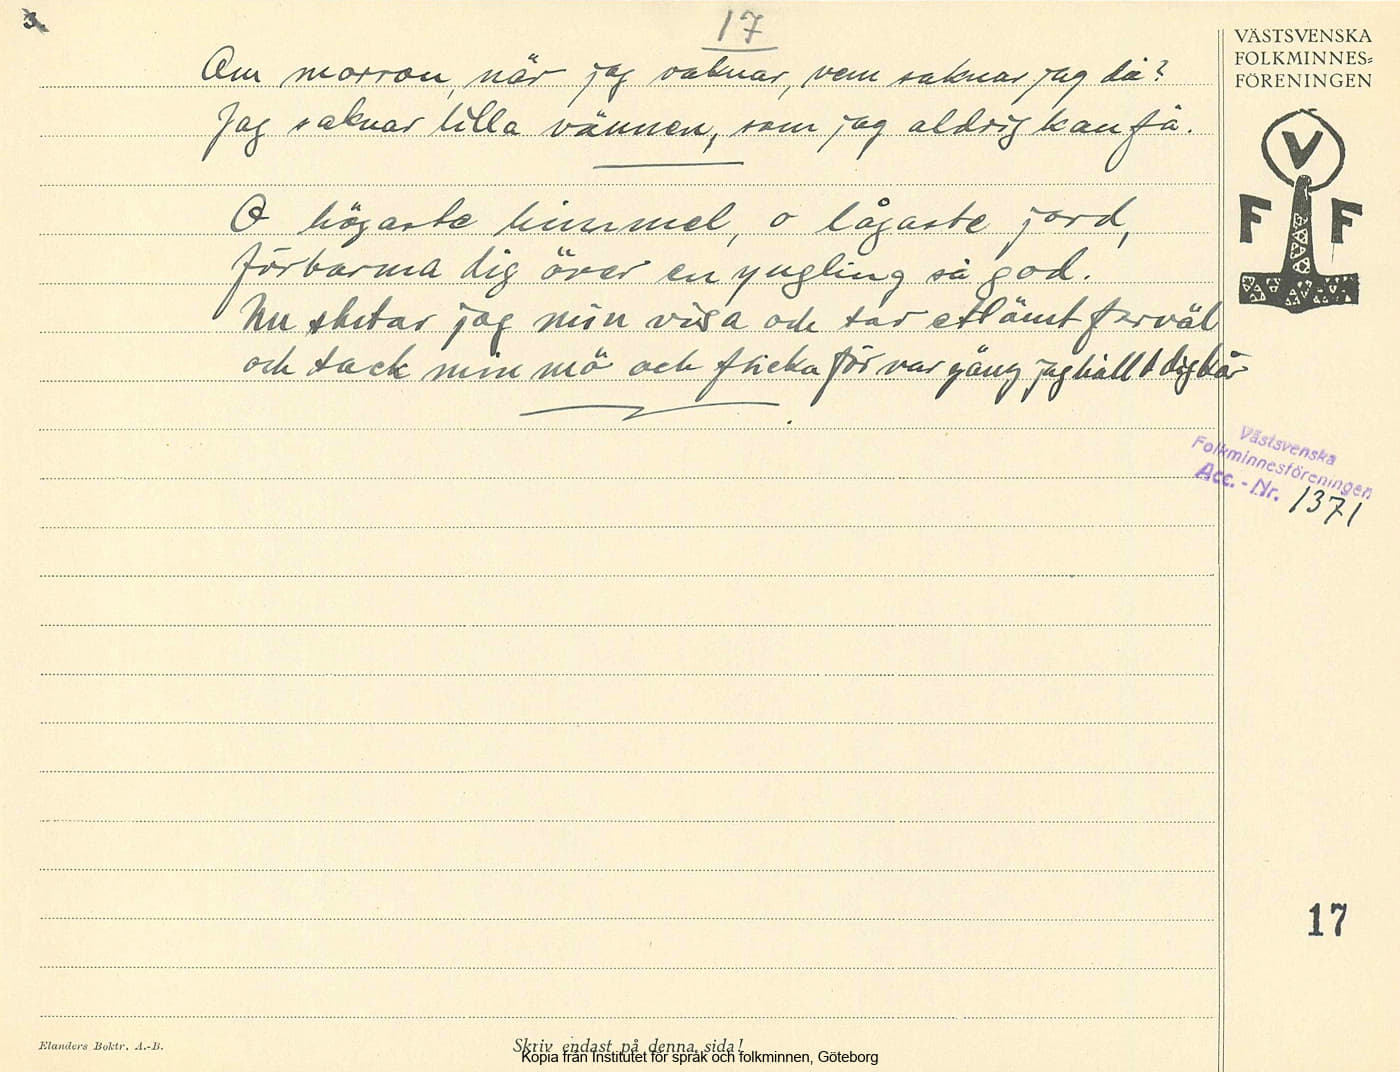 3.
17
Om morron, när jag vaknar, vem saknar jag då?
Jag saknar lilla vännen, som jag aldrig kan få.
O högaste himmel, o lågaste jord,
förbarma dig över en yngling så god.
Nu slutar jag min visa och tar ett ömt farväl
och tack min mö och flicka för var gång jag hållt dig kär
VÄSTSVENSKA
FOLKMINNES=
FÖRENINGEN
V
F F
Västsvenska
Folkminnesföreningen
Acc. - Nr. 1371
17
Elanders Boktr. A.-B.
Skriv endast på denna sida!
Kopia från Institutet för språk och folkminnen, Göteborg